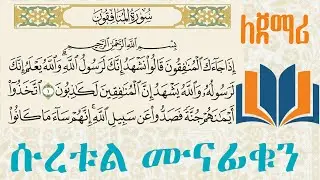 سُورَةُ المُنَافِقُونَ
بِسْمِ اللَّهِ الرَّحْمَٰنِ الرَّحِيمِ
إِذَا جَاءَكَ الْمُنَافِقُونَ قَالُوا نَشْهَدُ إِنَّكَ لَرَسُولُ اللَّهِ وَاللَّهُ يَعْلَمُ إِنَّكَ
لَرَسُولُهُ وَاللَّهُ يَشْهَدُ إِنَّ الْمُنَافِقِينَ لَكَاذِبُونَ ١ اتَّخَذُوا
أَيْمَانَهُمْ جُنَّةً فَصَدُّوا عَن سَبِيلِ اللَّهِ إِنَّهُمْ سَاءَ مَا كَانُوا
ለጀማሪ
ሱረቱል ሙናፊቁን